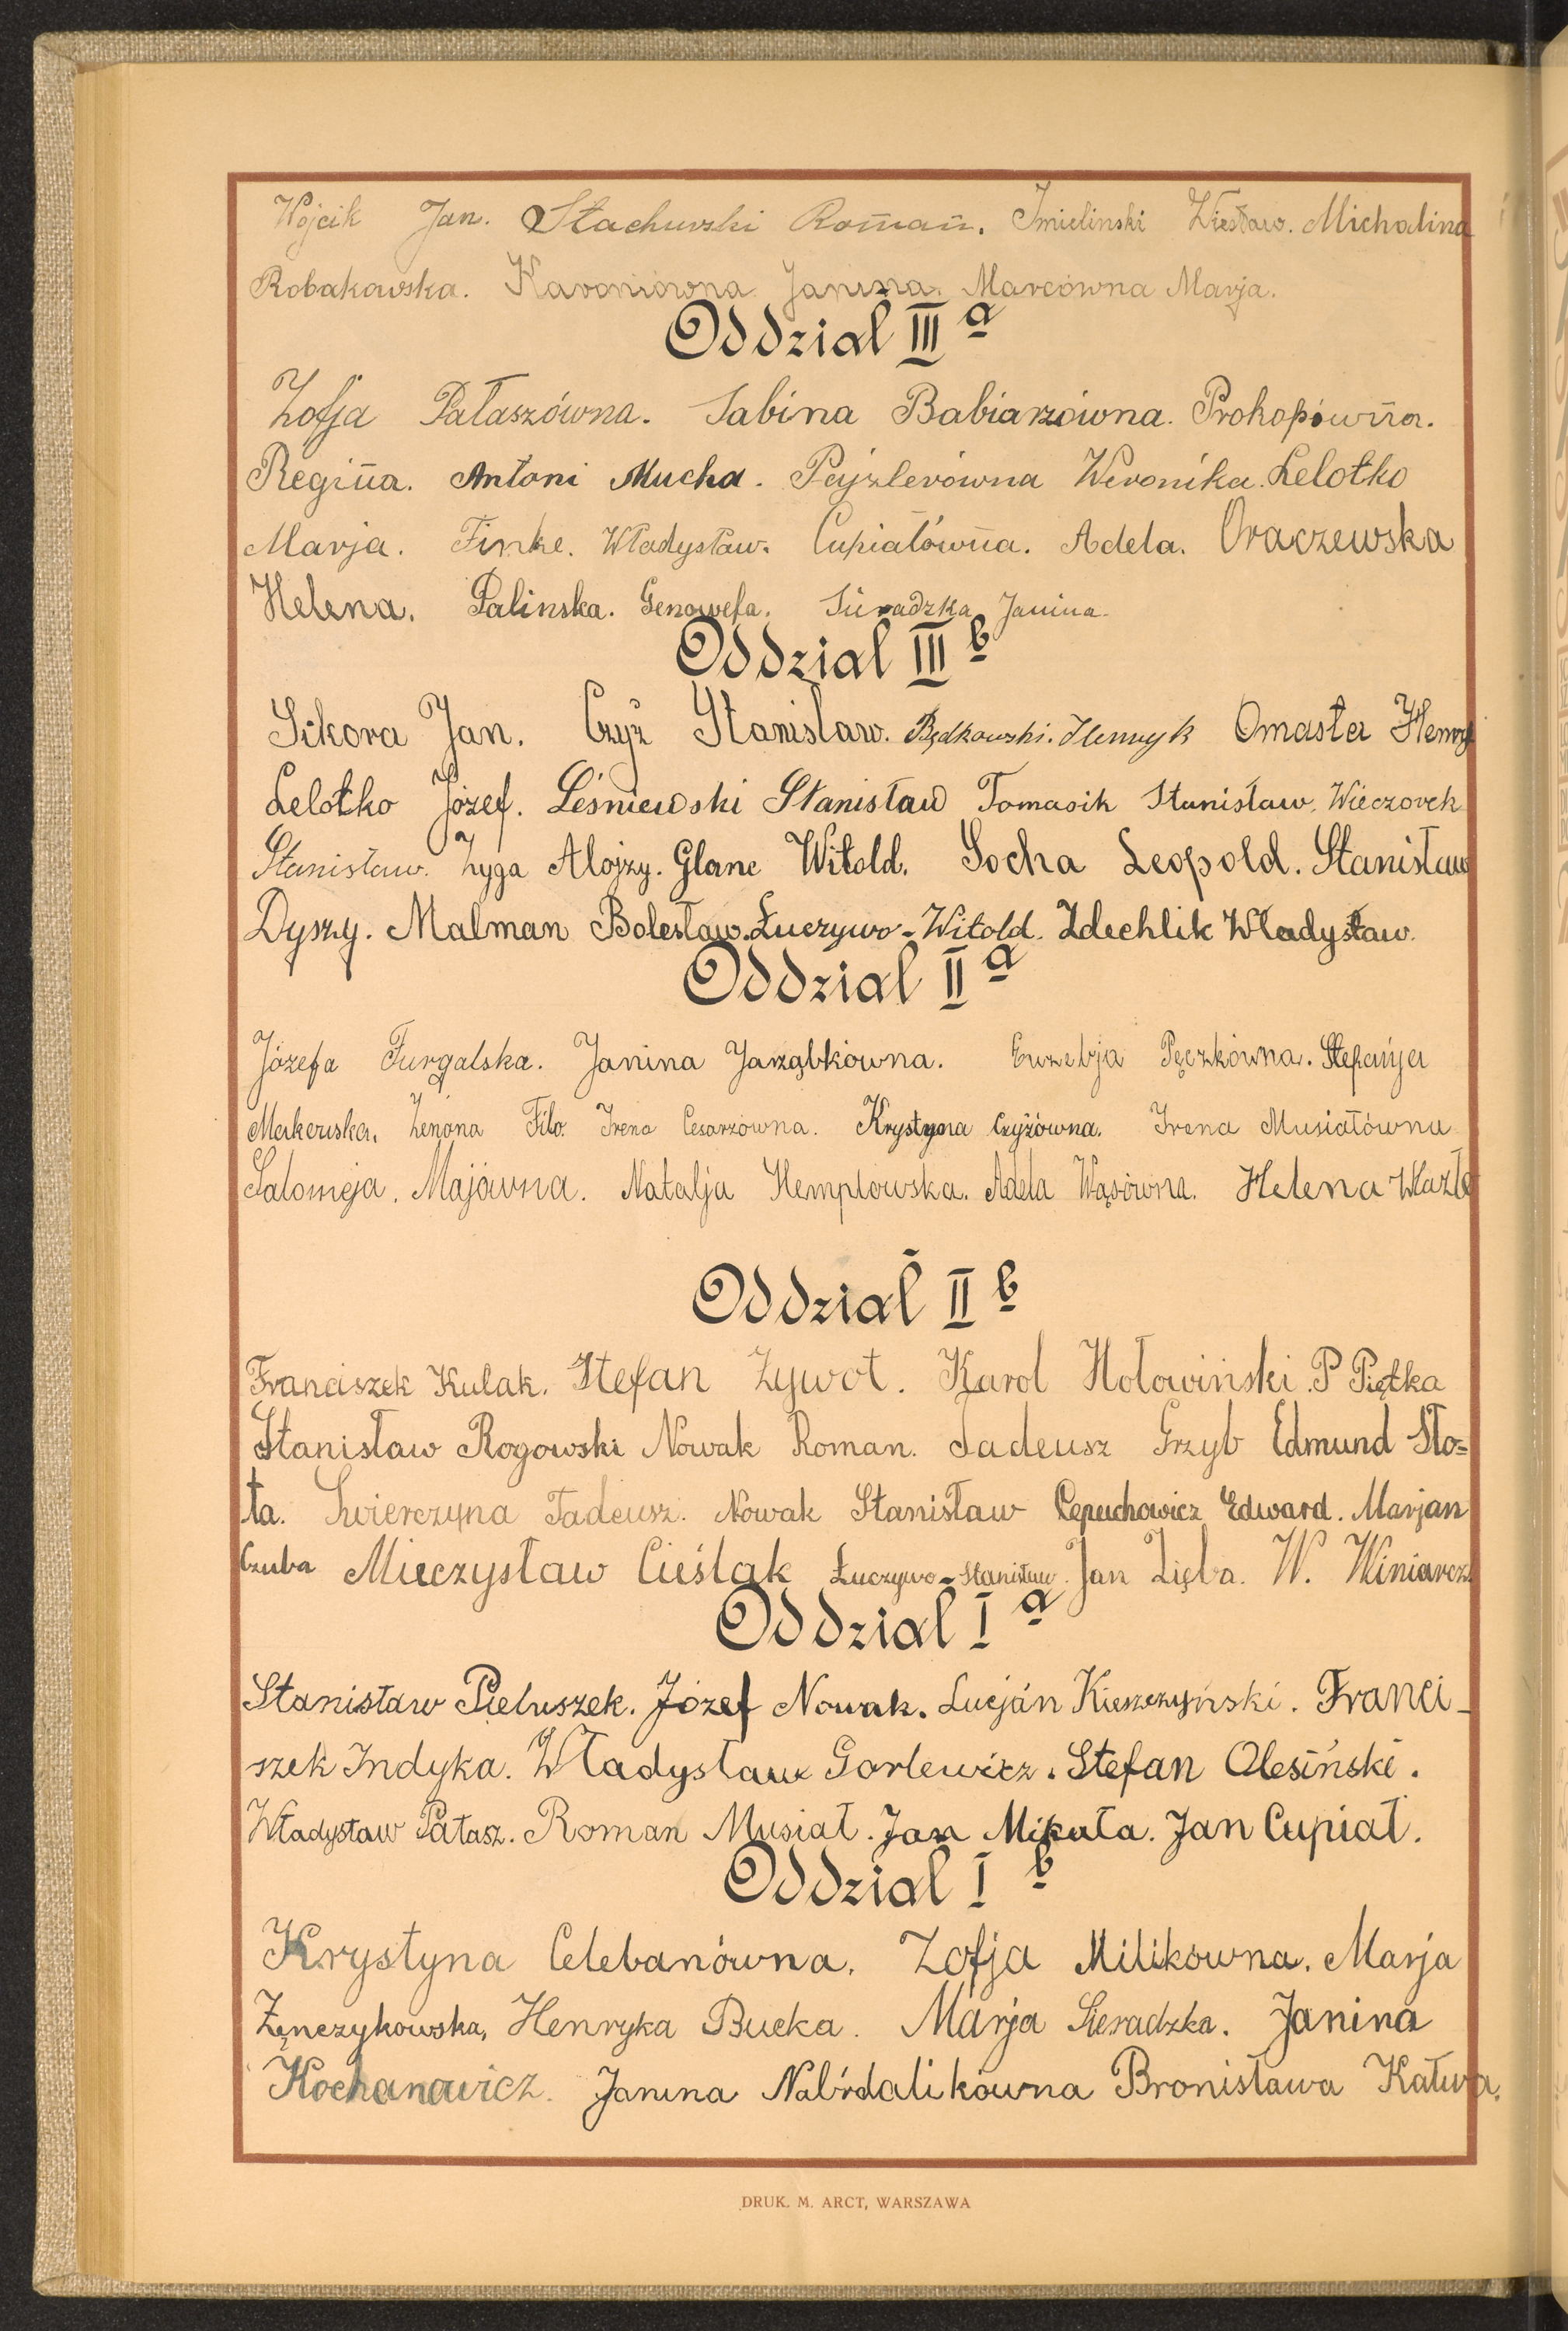 Wójcik Jan. Stachurski Roman. Imielinski Wiesław. Michalina
Robakowska. Karoniówna Janina. Marcówna Marja.
Oddział III a
Zofja Pałaszówna. Sabina Babiarzówna. Prokopówna.
Regina. Antoni Mucha. Pajzlerówna Weronika. Lelotko
Marja. Finke. Władysław. Cupiałówna. Adela. Oraczewska
Helena. Palinska. Genowefa. Sieradzka Janina.
Oddział III b
Sikora Jan. Czyż Stanisław. Będkowski. Henryk Omasta Henryk
Lelotko Józef. Leśniewski Stanisław Tomasik Stanisław. Wieczorek
Stanisław. Zyga Alojzy. Glanc Witold. Socha Leopold. Stanisław
Dyszy. Malman Bolesław. Łuczywo-Witold. Zdechlik Władysław.
Oddział II a
Józefa Furgalska. Janina Jarząbkówna. Euzebja Pęczkówna. Stefanja
Makowska. Zenona Filo. Irena Cesarzówna. Krystyna Czyżówna. Irena Musiałówna
Salomeja. Majówna. Natalja Hemplowska. Adela Wąsówna. Helena Wlazło
Oddział II b
Franciszek Kulak. Stefan Zywot. Karol Hołowiński. P Piętka
Stanisław Rogowski Nowak Roman. Tadeusz Grzyb Edmund Sło=
ta. Swierczyna Tadeusz. Nowak Stanisław Cepuchowicz Edward. Marjan
Czuba Mieczysław Cieślak Łuczywo-Stanisław. Jan Zięba. W. Winiarcz.
Oddział I a
Stanisław Pieluszek. Józef Nowak. Lucján Kieszczyński. Franci-
szek Indyka. Władysław Gorlewicz. Stefan Olesiński.
Władysław Pałasz. Roman Musiał. Jan Mikuła. Jan Cupiał.
Oddział I b
Krystyna Celebanówna. Zofja Milikówna. Marja
Zęnczykowska, Henryka Bucka. Marja Sieradzka. Janina
Kochanowicz. Janina Nabrdalikówna Bronisława Kałwa.
DRUK. M. ARCT, WARSZAWA